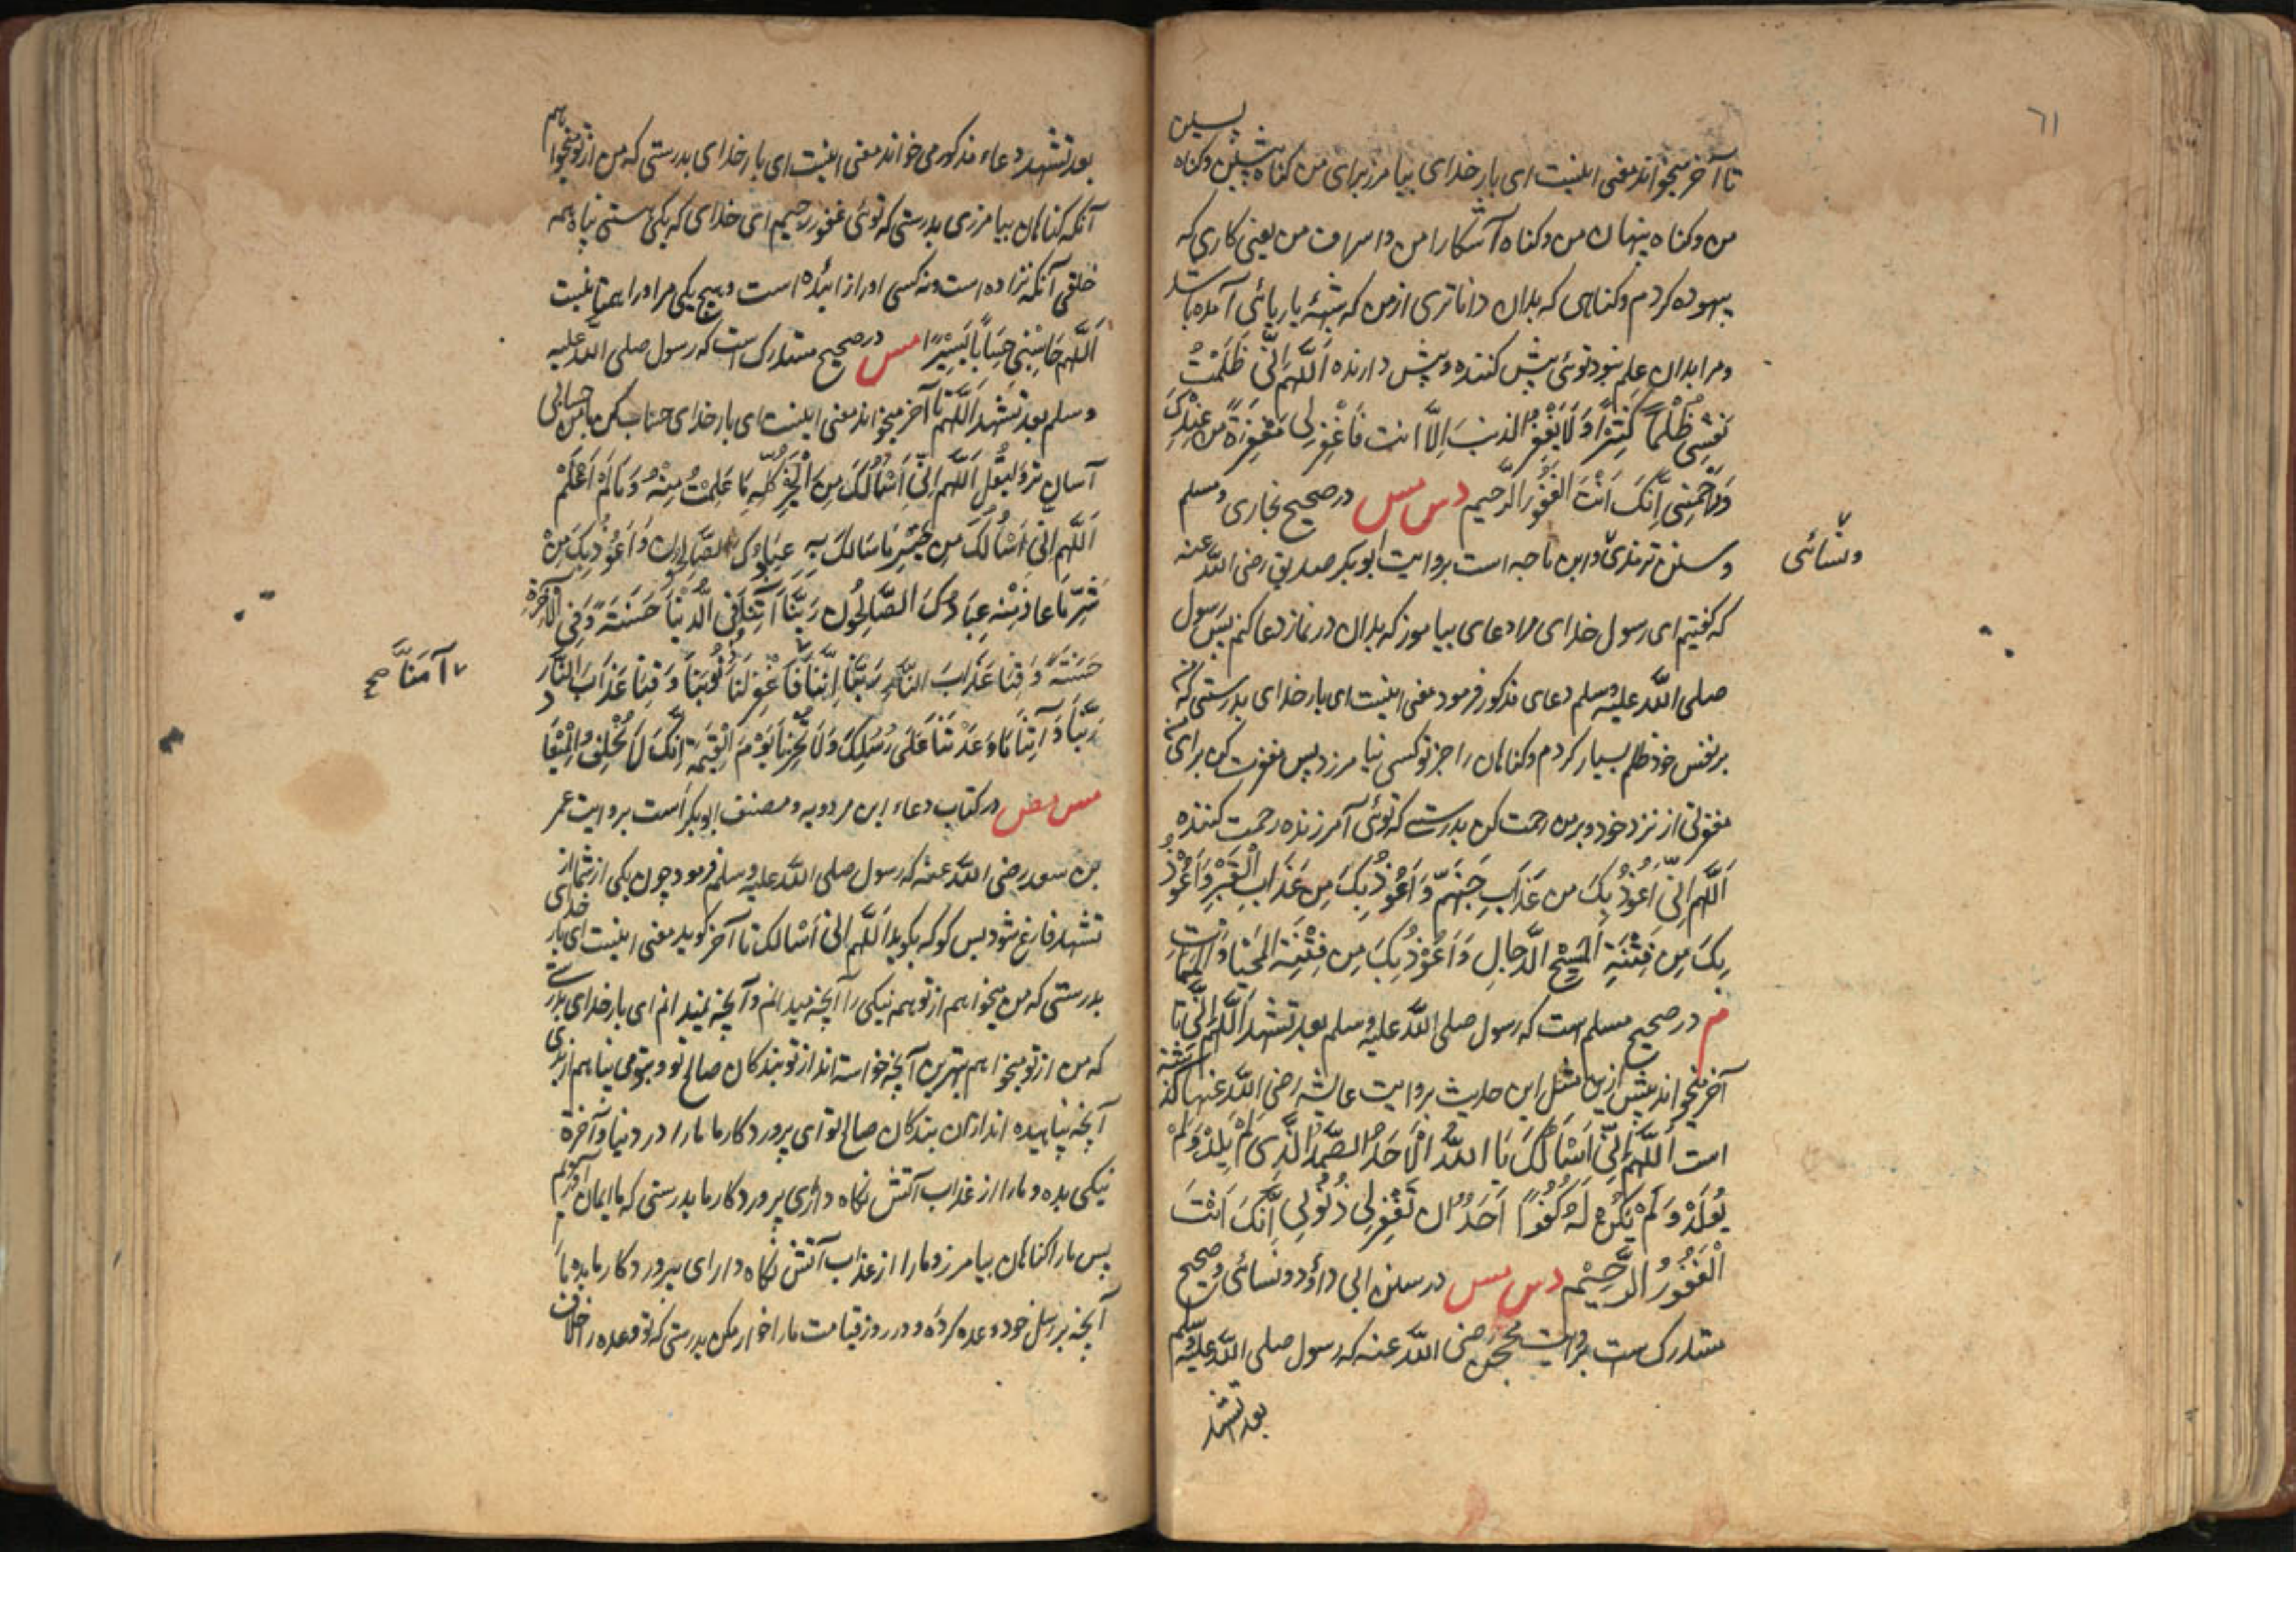 ٦١
تا آخر میخواند معنی اینست ای بار خدای بیامرز برای من کناه پیشین وکناه پسین
من وکناه پنهان من وکناه آشکارا من واسراف من یعنی کاری که
بیهوده کردم وکناهی که بدان داناتری ازمن که بارهائی آمده باشد
ومرا بدان علم نبود توئی پیش کننده وپس دارنده اَللّٰهُمَّ اِنِّی ظَلَمْتُ
نَفْسِی ظُلْمًا کَثِیْرًا وَلَا یَغْفِرُ الذنبَ اِلَّا انت فَاغْفِرْ لِی مَغْفِرَةً مِن عِنْدِکَ
وَارْحَمْنِی اِنَّکَ اَنْتَ الغَفُوْرُ الرَّحِیم درصحیح بخاری ومسلم
وسنن ترمذی وابن ماجه است بروایت ابوبکر صدیق رضی اللّٰه عنه
ونسائی
که کفتیم ای رسول خدای مرا دعای بیاموز که بدان در نماز دعا کنم پس رسول
صلی اللّٰه علیه وسلم دعای مذکور فرمود معنی اینست ای بار خدای بدرستی که من
بر نفس خود ظلم بسیار کردم وکناهان را جز تو کسی نیامرزد پس مغفرت کن برای من
مغفرتی از نزد خود وبر من رحمت کن بدرستے که توئی آمرزنده رحمت کننده
اَللّٰهُمَّ اِنِّی اَعُوْذُ بِکَ من عَذَابِ جَهَنَّمَ وَاَعُوْذُ بِکَ مِن عَذَابِ الْقَبْرِ وَاَعُوْذُ
بِکَ مِن فِتْنَةِ المَسِیْحِ الدَّجالِ وَاَعُوْذُ بِکَ مِن فِتْنَةِ المَحْیَا وَالْمَمَاتِ
م درصحیح مسلم است که رسول صلی اللّٰه علیه وسلم بعد تشهد اَللّٰهُمَّ اِنِّی تا
آخر میخواند پیش ازین مثل این حدیث بروایت عائشه رضی اللّٰه عنها کذشته
است اَللّٰهُمَّ اِنِّی اَسْاَلُکَ یَا اَللّٰهُ الْاَحَدُ الصَّمَدُ الَّذِی لَمْ یَلِدْ وَلَمْ
یُوْلَدْ وَلَمْ یَکُن لَهُ کُفُوًا اَحَدٌ ان تَغْفِرَ لِی ذُنُوْبِی اِنَّکَ اَنْتَ
الْغَفُوْرُ الرَّحِیْم د س مس درسنن ابی داؤد ونسائی وصحیح
مستدرک ست بروایت محجن رضی اللّٰه عنه که رسول صلی اللّٰه علیه وسلم
بعد تشهد
بعد تشهد دعاء مذکور می خواند معنی اینست ای بار خدای بدرستی که من از تو میخواهم
آنکه کناهان بیامرزی بدرستی که توئی غفور رحیم ای خدای که یکی هستی پناه همه
خلقی آنکه نزاده است ونه کسی اورا زائیده است وهیچ یکی مر اورا همتا نیست
اَللّٰهُمَّ حَاسِبْنِی حِسَابًا یَسِیْرًا مس درصحیح مستدرک است که رسول صلی اللّٰه علیه
وسلم بعد تشهد اَللّٰهُمَّ تا آخر میخواند معنی اینست ای بار خدای حساب کن بامن حسابی
آسان تر وَلیَقُل اَللّٰهُمَّ اِنِّی اَسْاَلُکَ مِن الْخَیْرِ کُلِّهِ مَا عَلِمْتُ مِنْهُ وَمَا لَمْ اَعْلَمْ
اَللّٰهُمَّ اِنِّی اَسْاَلُکَ مِن خَیْرِ مَا سَاَلَکَ بِهِ عِبَادُکَ الصَّالِحُوْن وَاَعُوْذُ بِکَ مِنْ
شَرِّ مَا عاذ مِنْه عِبَادُکَ الصَّالِحُون رَبَّنَا آتِنَا فِی الدُّنْیَا حَسَنَةً وَفِی الْآخِرَةِ
حَسَنَةً وَقِنَا عَذَابَ النَّارِ رَبَّنَا اِنَّنَا فَاغْفِرْ لَنَا ذُنُوْبَنَا وَقِنَا عَذَابَ النَّار
آمَنَّا صح
رَبَّنَا وَآتِنَا مَا وَعَدْتَنَا عَلَی رُسُلِکَ وَلَا تُخْزِنَا یَوْمَ الْقِیٰمَةِ اِنَّکَ لَا تُخْلِفُ الْمِیْعَاد
درکتاب دعاء ابن مردویه ومصنف ابوبکر است بروایت عمر
بن سعد رضی اللّٰه عنه که رسول صلی اللّٰه علیه وسلم فرمود چون یکی از شما از
تشهد فارغ شود پس کو که بکوید اَللّٰهم انی اسْالک تا آخر کوید معنی اینست ای بار خدای
بدرستی که من میخواهم از تو همه نیکی را آنچه میدانم وآنچه نمیدانم ای بار خدای بدرستے
که من از تو میخواهم بهترین آنچه خواسته اند از تو بندکان صالح تو وبتو می پناهم از بدی
آنچه پناهیده اند ازان بندکان صالح تو ای پروردکار ما مارا در دنیا وآخرة
نیکی بده ومارا از عذاب آتش نکاه داری ای پروردکار ما بدرستی که ما ایمان آوردیم
پس مارا کناهان بیامرز ومارا از عذاب آتش نکاه دار ای پروردکار ما بده مارا
آنچه بر رسل خود وعده کردهٔ ودر روز قیامت مارا خوار مکن بدرستی که تو وعده را خلاف